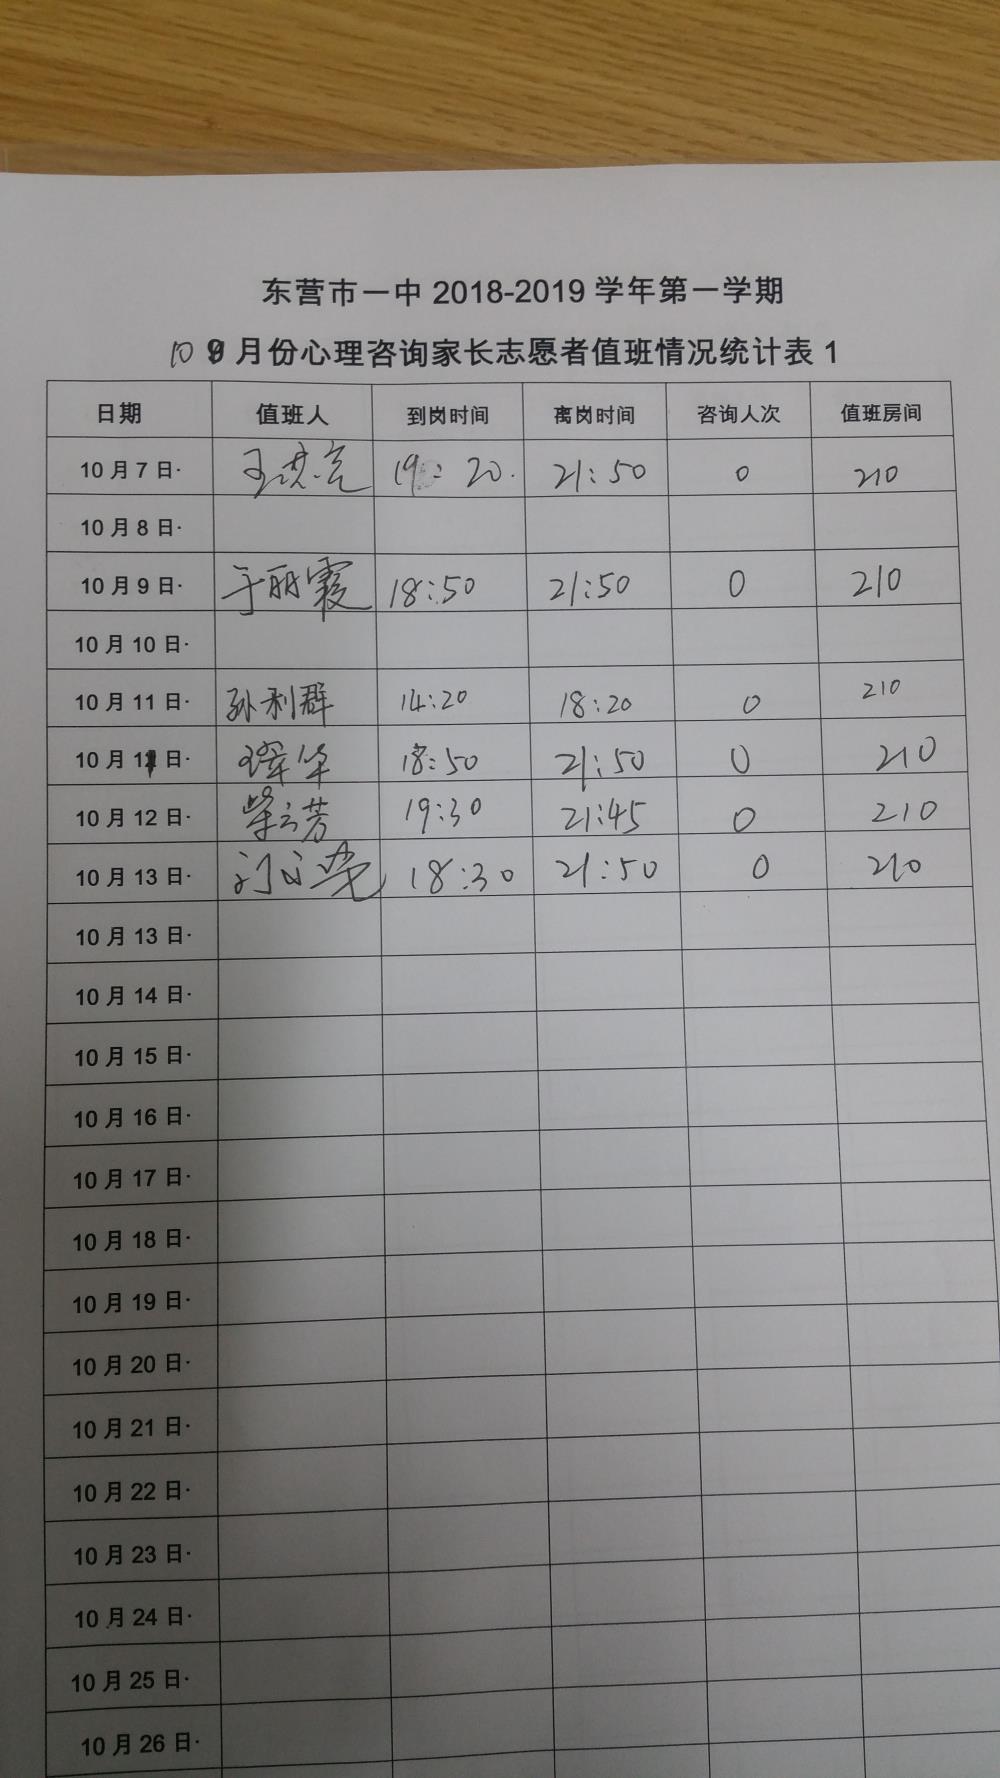 东营市一中 2018-2019 学年第一学期
10 9 月份心理咨询家长志愿者值班情况统计表 1
日期 值班人 到岗时间 离岗时间 咨询人次 值班房间
10 月 7 日· 19:20. 21:50 0 210
10 月 8 日·
10 月 9 日· 于丽霞 18:50 21:50 0 210
10 月 10 日·
10 月 11 日· 孙利群 14:20 18:20 0 210
10 月 11 日· 18:50 21:50 0 210
10 月 12 日· 柴云芳 19:30 21:45 0 210
10 月 13 日· 18:30 21:50 0 210
10 月 13 日·
10 月 14 日·
10 月 15 日·
10 月 16 日·
10 月 17 日·
10 月 18 日·
10 月 19 日·
10 月 20 日·
10 月 21 日·
10 月 22 日·
10 月 23 日·
10 月 24 日·
10 月 25 日·
10 月 26 日·